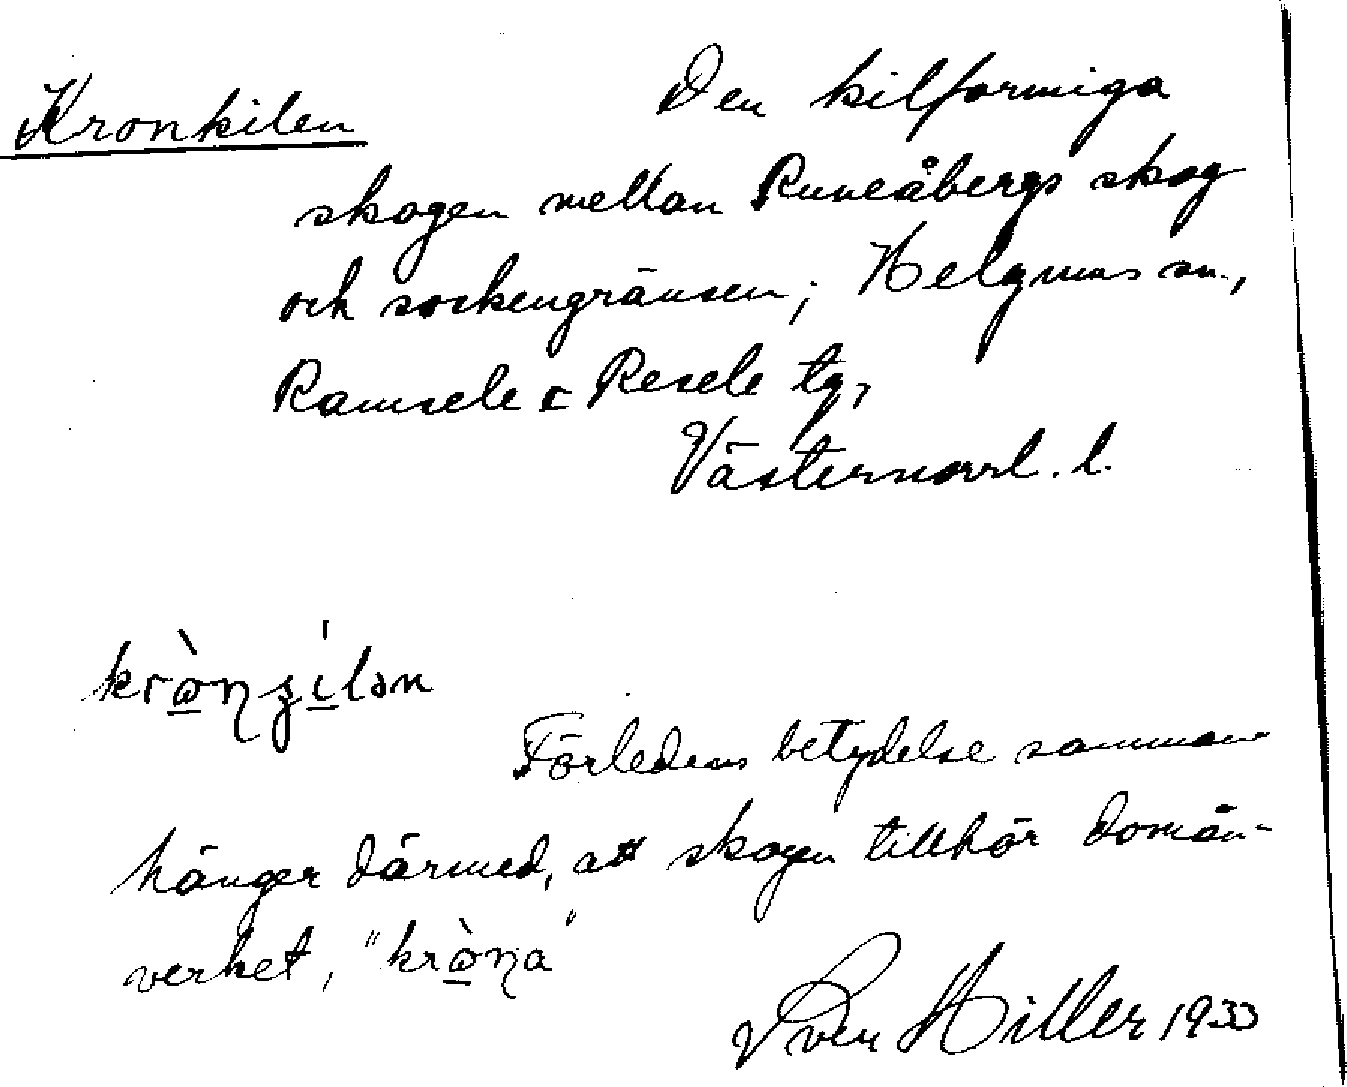 Kronkilen Den kilformiga
skogen mellan Runeåbergs skog
och sockengränsen; Helgums sn.,
Ramsele o Resele tg,
Västernorrl. l.
Förledens betydelse samman-
hänger därmed, att skogen tillhör domän-
verket,
Sven Hiller 1933